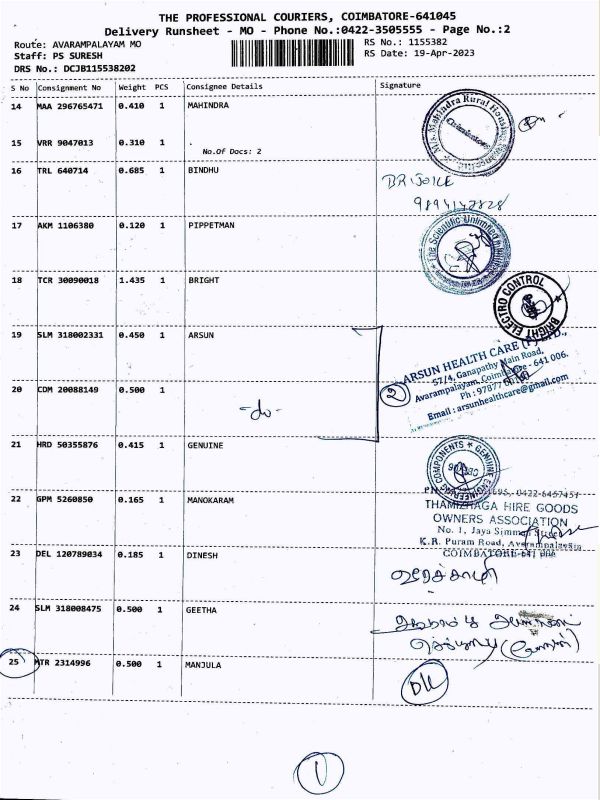 THE PROFESSIONAL COURIERS, COIMBATORE-641045
Delivery Runsheet - MO - Phone No.:0422-3505555 - Page No.:2
Route: AVARAMPALAYAM MO RS No.: 1155382
Staff: PS SURESH RS Date: 19-Apr-2023
DRS No.: DCJB115538202
S No Consignment No Weight PCS Consignee Details Signature
14 MAA 296765471 0.410 1 MAHINDRA
15 VRR 9047013 0.310 1 .
No.Of Docs: 2
16 TRL 640714 0.685 1 BINDHU
BRIJOICE
17 AKM 1106380 0.120 1 PIPPETMAN
The Scientific Unlimited
18 TCR 30090018 1.435 1 BRIGHT
BRIGHT ELECTRO CONTROL
19 SLM 318002331 0.450 1 ARSUN
ARSUN HEALTH CARE (P) LTD.,
57/4, Ganapathy Main Road,
Avarampalayam, Coimbatore - 641 006.
Email : arsunhealthcare@gmail.com
2
20 CDM 20088149 0.500 1
-do-
21 HRD 50355876 0.415 1 GENUINE
GENUINE ENGINEERING COMPONENTS
22 GPM 5260850 0.165 1 MANOKARAM
0422-6457451
THAMIZHAGA HIRE GOODS
OWNERS ASSOCIATION
No. 1, Jaya Simman Street
K.R. Puram Road, Avarampalayam
COIMBATORE-641 006
23 DEL 120789034 0.185 1 DINESH
24 SLM 318008475 0.500 1 GEETHA
25 MTR 2314996 0.500 1 MANJULA
D/L
1